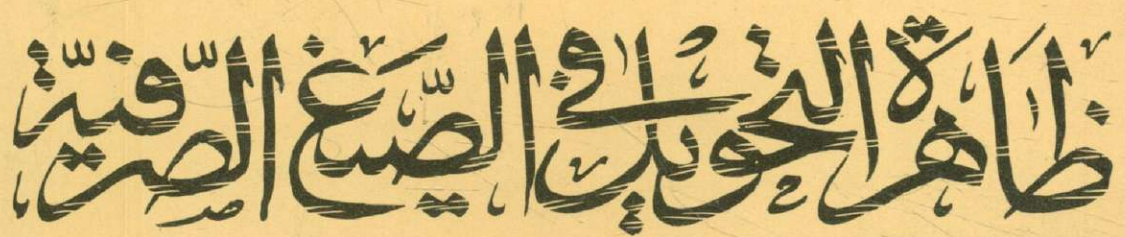 ظَاهرة التحويل في الصِّيَغ الصَّرفيّة